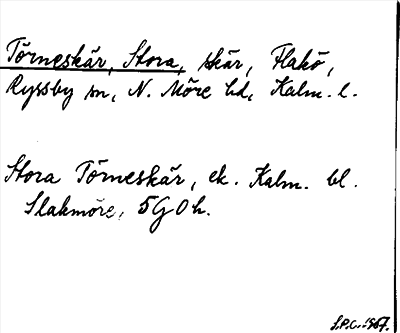 Törneskär, Stora, skär, Flakö,
Ryssby sn, N. Möre hd, Kalm. l.
Stora Törneskär, ek. Kalm. bl.
Slakmöre, 5G0h.
S.P.C. 1967.